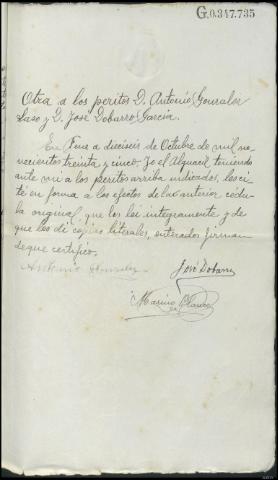 G.0.347.735
Otra a los peritos D. Antonio Gonzalez
Laso y D. José Dobarro García.
En Fene a dieciseis de Octubre de mil no-
vecientos treinta y cinco. Yo el Alguacil teniendo
ante mi a los peritos arriba indicados, les ci-
té en forma a los efectos de la anterior cédu-
la original, que les leí integramente y de
que les dí copias literales, enterados firman
de que certifico.
Antonio Gonzalez José Dobarro
Marino Blanco